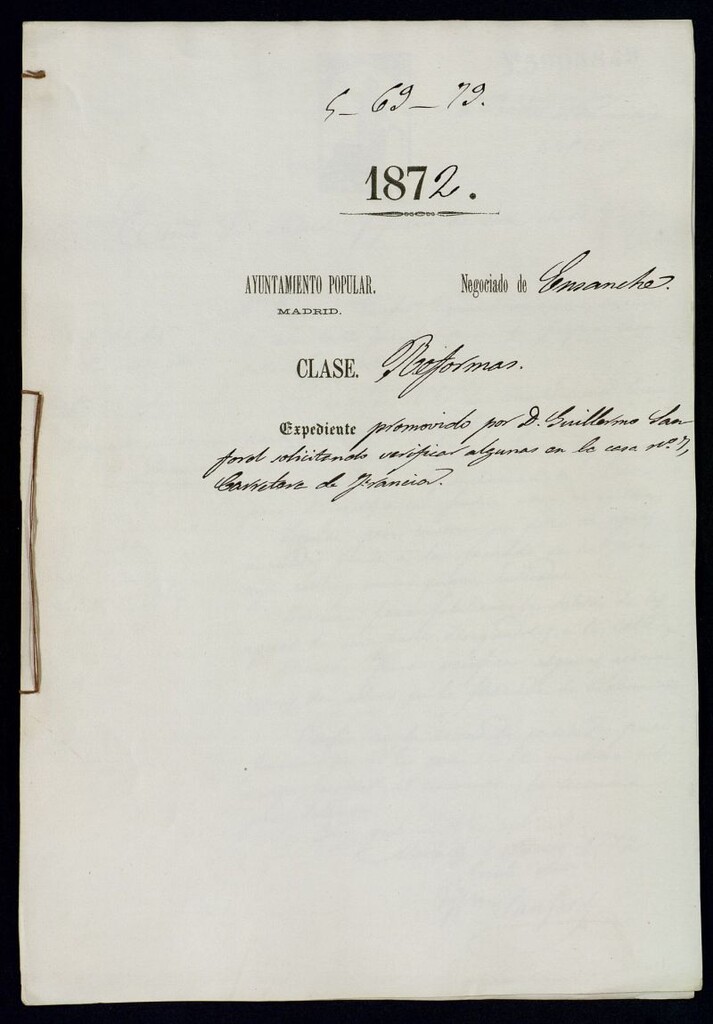 5-69-79.
1872.
AYUNTAMIENTO POPULAR. Negociado de Ensanche.
MADRID.
CLASE. Reformas.
Expediente promovido por D. Guillermo San
ford solicitando verificar algunas en la casa nº 7,
Carretera de Francia.